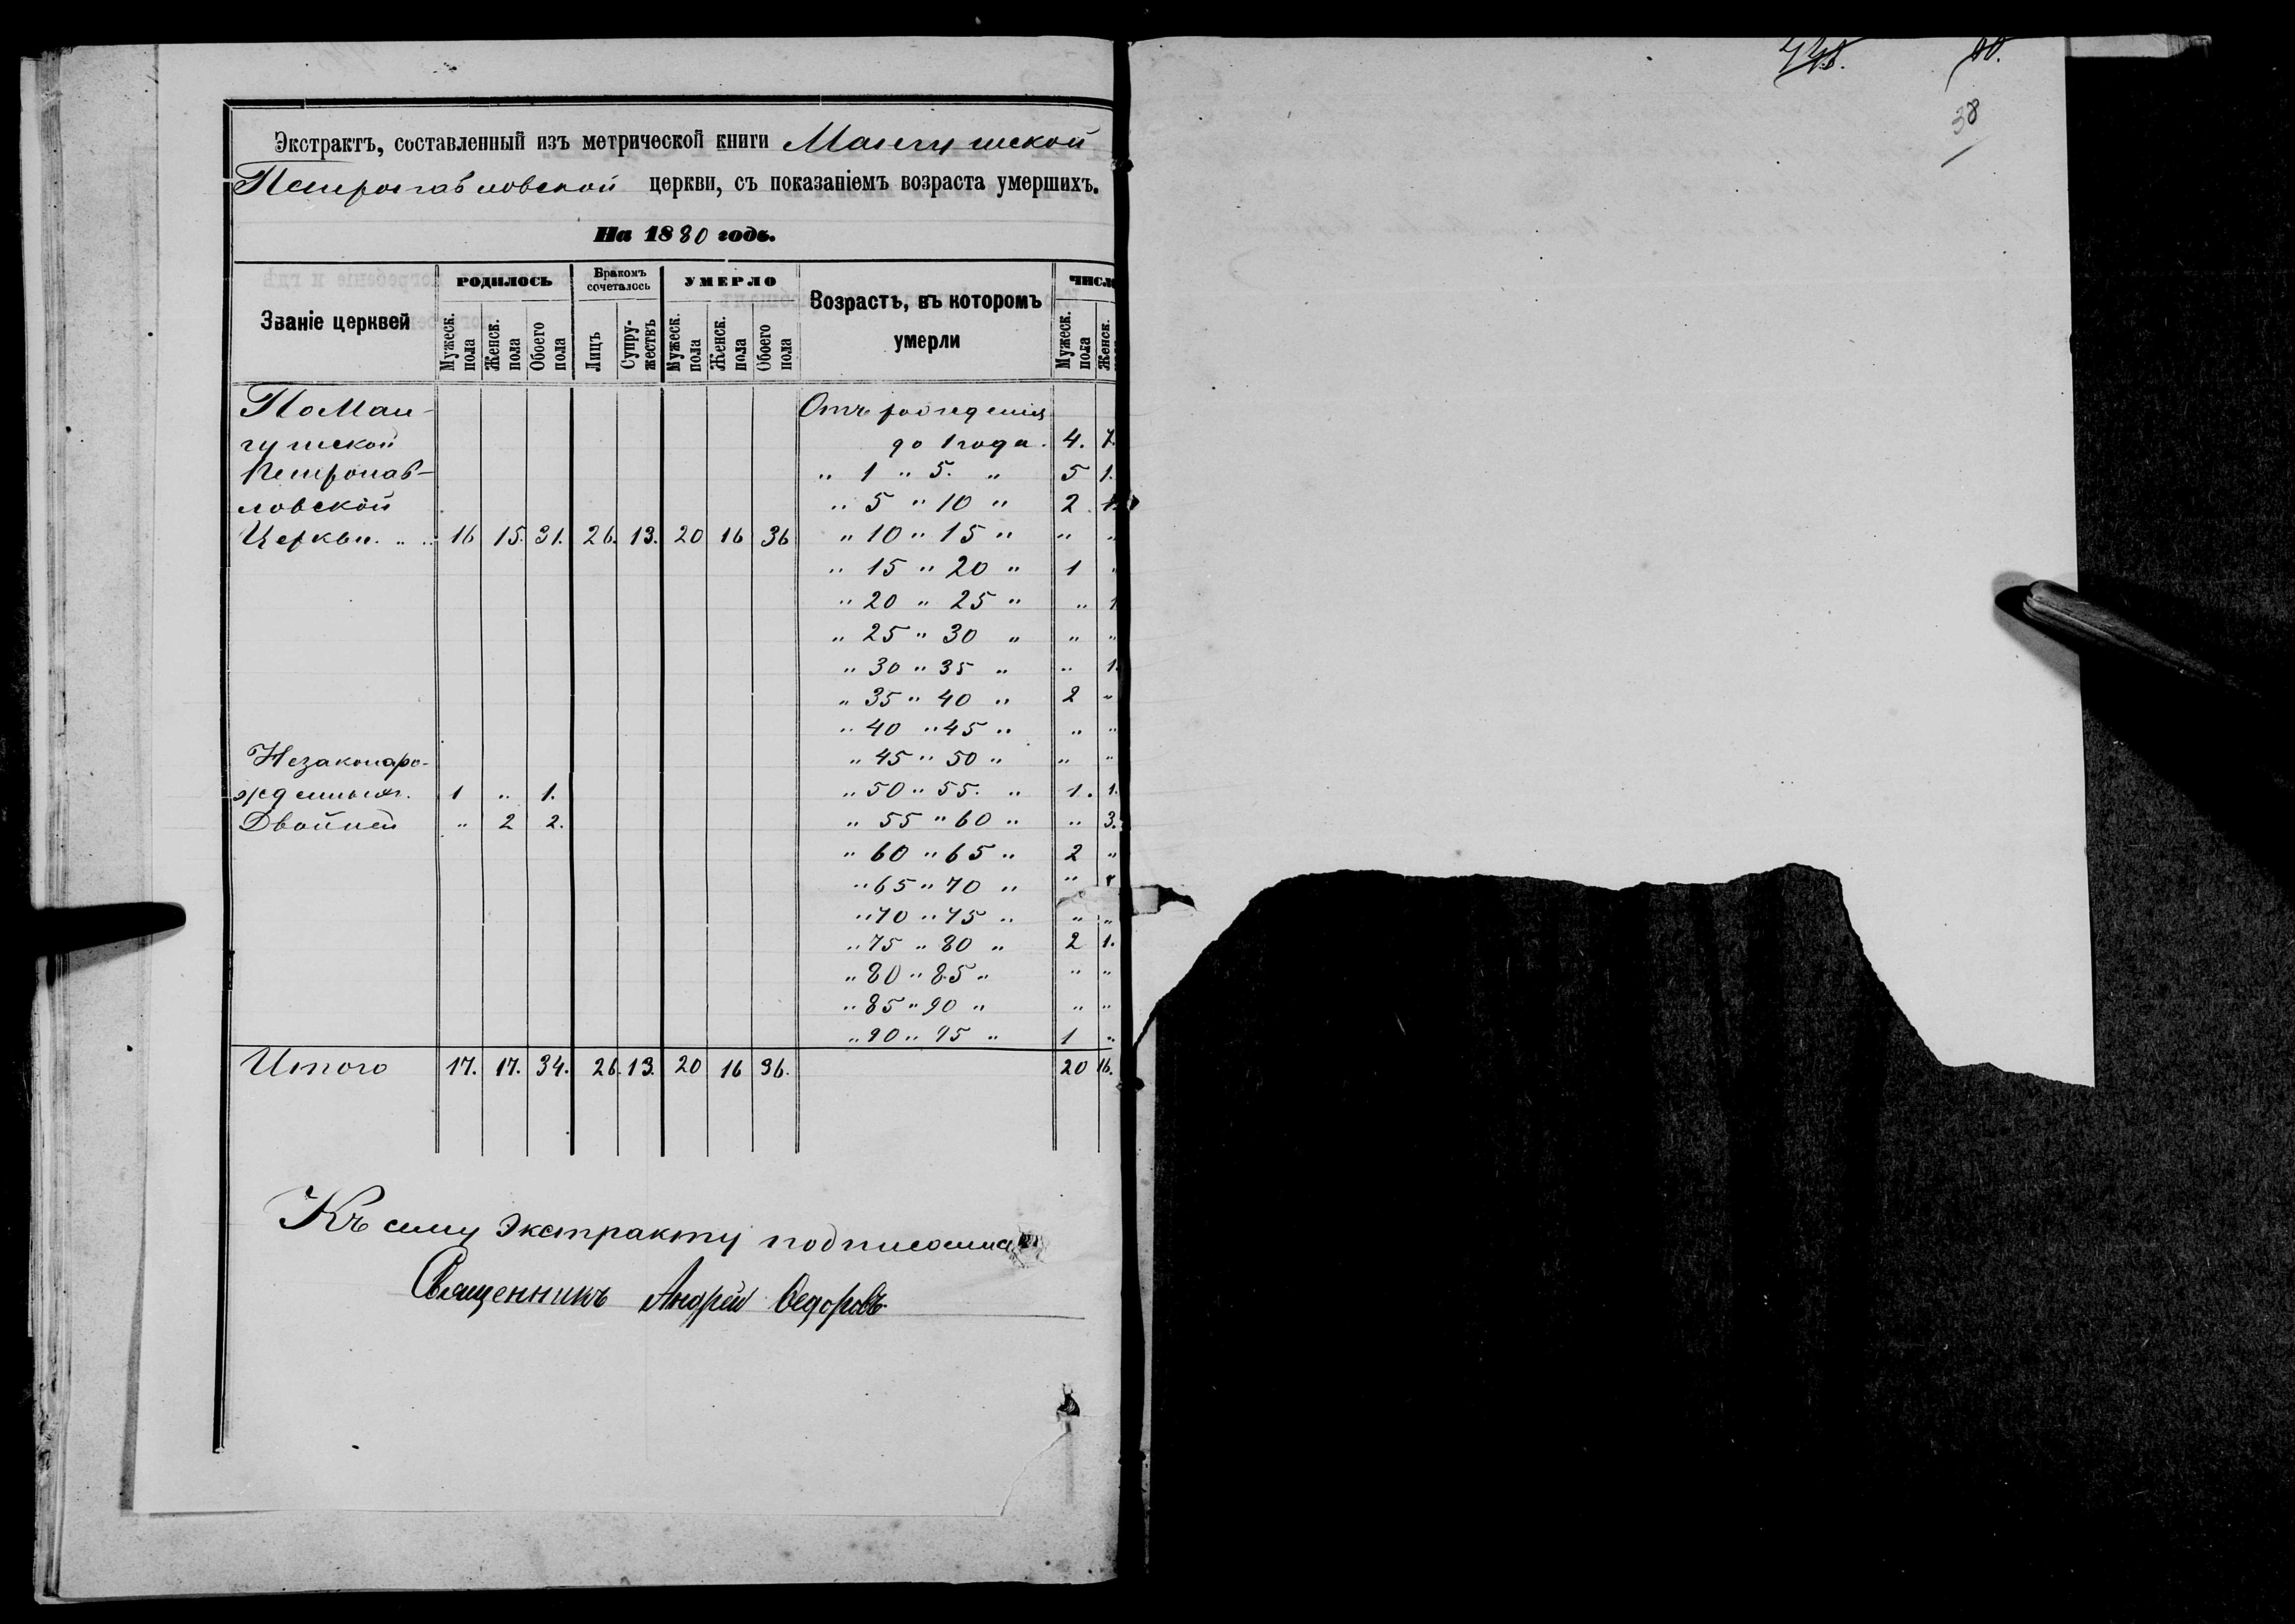 448. 40.
38
Экстрактъ, составленный изъ метрической книги Мангушской
Петропавловской церкви, съ показаніемъ возраста умершихъ.
На 1880 годъ.
Званіе церквей РОДИЛОСЬ Бракомъ сочеталось УМЕРЛО Возрастъ, въ которомъ умерли ЧИСЛО
Мужеск. пола Женск. пола Обоего пола Лицъ Супружествъ Мужеск. пола Женск. пола Обоего пола Мужеск. пола Женск.
По Ман- Отъ рожденія
гушской до 1 года. 4. 7.
Петропав- " 1 " 5. " 5 1.
ловской " 5 " 10 " 2
Церкви. " .. 16 15. 31. 26. 13. 20 16 36 " 10 " 15 " " "
" 15 " 20 " 1 "
" 20 " 25 " " 1
" 25 " 30 " " "
" 30 " 35 " " 1.
" 35 " 40 " 2 "
" 40 " 45 " " "
Незаконоро- " 45 " 50 " " "
жденныхъ. 1 " 1. " 50 " 55. " 1. 1.
Двойней " 2 2. " 55 " 60 " " 3.
" 60 " 65 " 2 "
" 65 " 70 " "
" 70 " 75 " " "
" 75 " 80 " 2 1.
" 80 " 85 " " "
" 85 " 90 " " "
" 90 " 95 " 1 "
Итого 17. 17. 34. 26. 13. 20 16 36. 20 16.
Къ сему экстракту подписались
Священникъ Андрей Ѳедоровъ